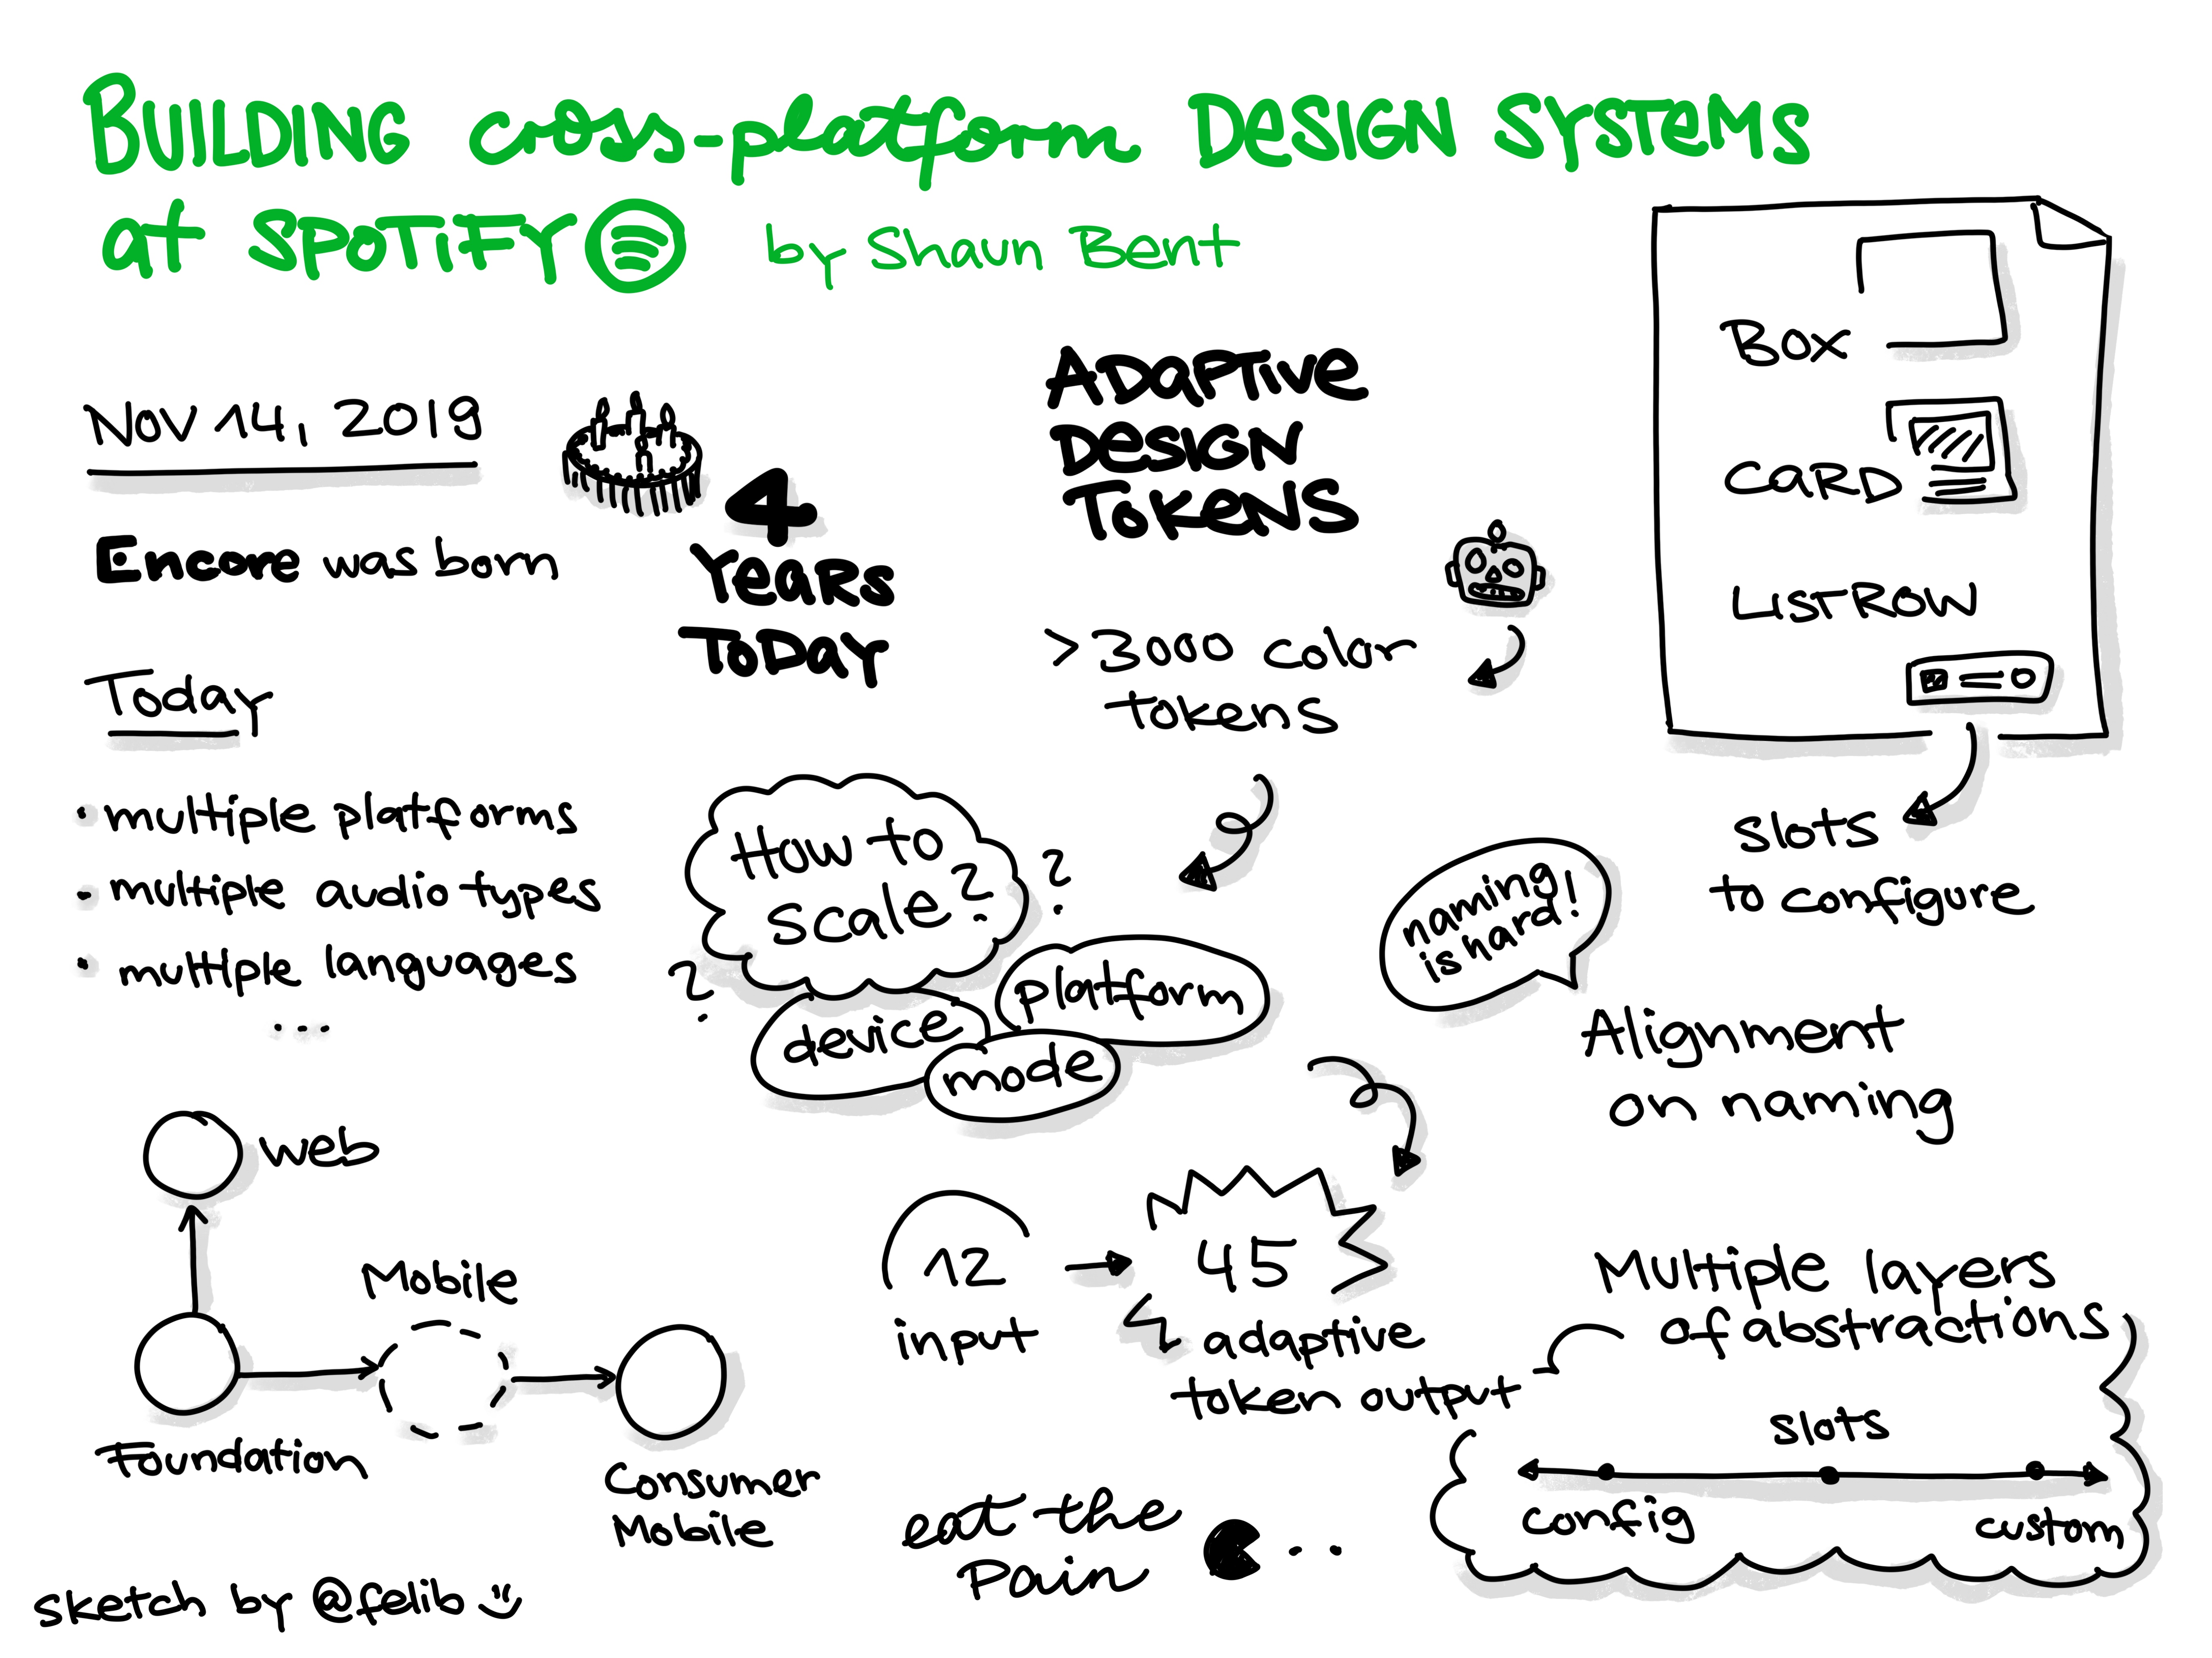 BUILDING cross-platform DESIGN SYSTEMS
at SPOTIFY by Shaun Bent
Nov 14, 2019
Encore was born
4
Years
Today
Today
• multiple platforms
• multiple audio types
• multiple languages
...
web
Mobile
Foundation
Consumer
Mobile
sketch by @felib
Adaptive
Design
Tokens
> 3000 color
tokens
How to
scale?
?
?
device
platform
mode
12
input
45
adaptive
token output
eat the
Pain
Box
Card
ListRow
slots
to configure
naming
is hard!
Alignment
on naming
Multiple layers
of abstractions
slots
config
custom